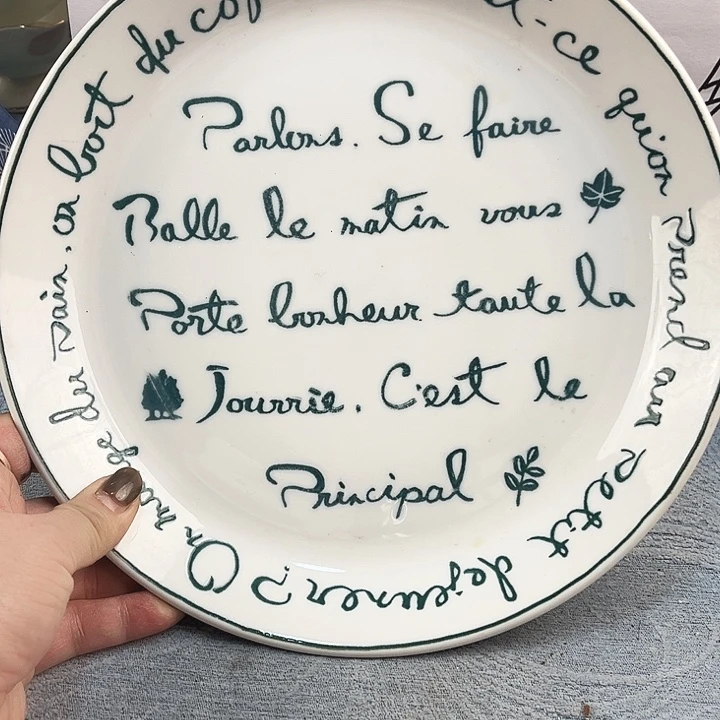 Parlons. Se faire
Balle le matin vous
Porte bonheur taute la
Jourrie. C'est le
Principal
On mage du pain, on boit du
-ce qu'on prend au petit dejeuner?